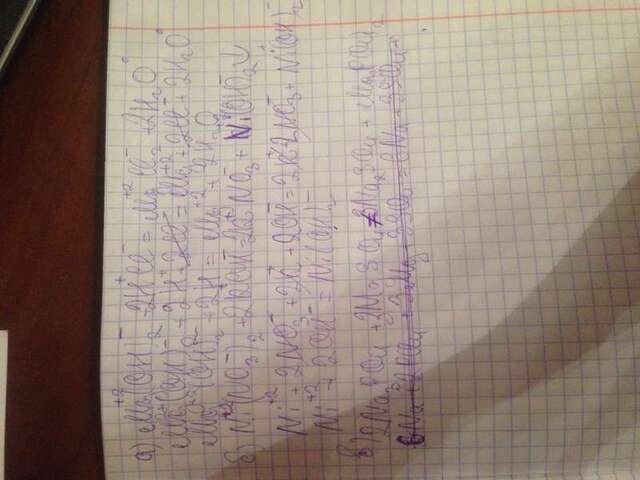 а) Mg⁺²(OH)₂⁻ + 2H⁺Cl⁻ = Mg⁺²Cl₂⁻ + 2H₂O°
Mg²⁺(OH)₂⁻ + 2H⁺ + 2Cl⁻ = Mg⁺² + 2Cl⁻ + 2H₂O°
Mg⁺²(OH)₂⁻ + 2H = Mg⁺² + 2H₂O
б) Ni⁺²(NO₃⁻)₂ + 2K⁺OH⁻ = 2K⁺NO₃⁻ + Ni⁺²(OH)₂⁻↓
Ni⁺² + 2NO₃⁻ + 2K⁺ + 2OH⁻ = 2K⁺ 2NO₃⁻ + Ni⁺²(OH)₂⁻
Ni⁺² + 2OH⁻ = Ni(OH)₂⁻
в) 2Na₃PO₄ + 3MgSO₄ = 3Na₂SO₄ + Mg₃(PO₄)₂
6Na + 2PO₄ + 3Mg + 3SO₄ = 6Na + 3SO₄ +